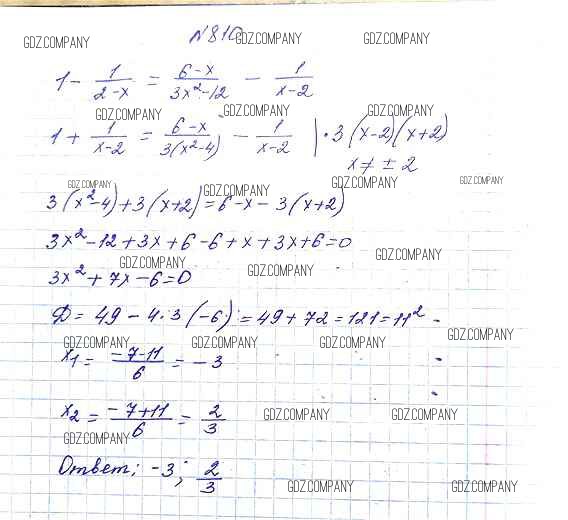 №810
GDZ.COMPANY GDZ.COMPANY GDZ.COMPANY
1 - 1/(2-x) = (6-x)/(3x²-12) - 1/(x-2)
GDZ.COMPANY GDZ.COMPANY GDZ.COMPANY
1 + 1/(x-2) = (6-x)/(3(x²-4)) - 1/(x-2) | · 3(x-2)(x+2)
x ≠ ± 2
GDZ.COMPANY GDZ.COMPANY GDZ.COMPANY
3(x²-4)+3(x+2)=6-x-3(x+2)
3x²-12+3x+6-6+x+3x+6=0
GDZ.COMPANY GDZ.COMPANY GDZ.COMPANY
3x²+7x-6=0
D = 49 - 4·3(-6) = 49+72=121=11²
GDZ.COMPANY GDZ.COMPANY GDZ.COMPANY GDZ.COMPANY
x₁ = (-7-11)/6 = -3
x₂ = (-7+11)/6 = 2/3
GDZ.COMPANY GDZ.COMPANY GDZ.COMPANY
Ответ: -3; 2/3
GDZ.COMPANY GDZ.COMPANY